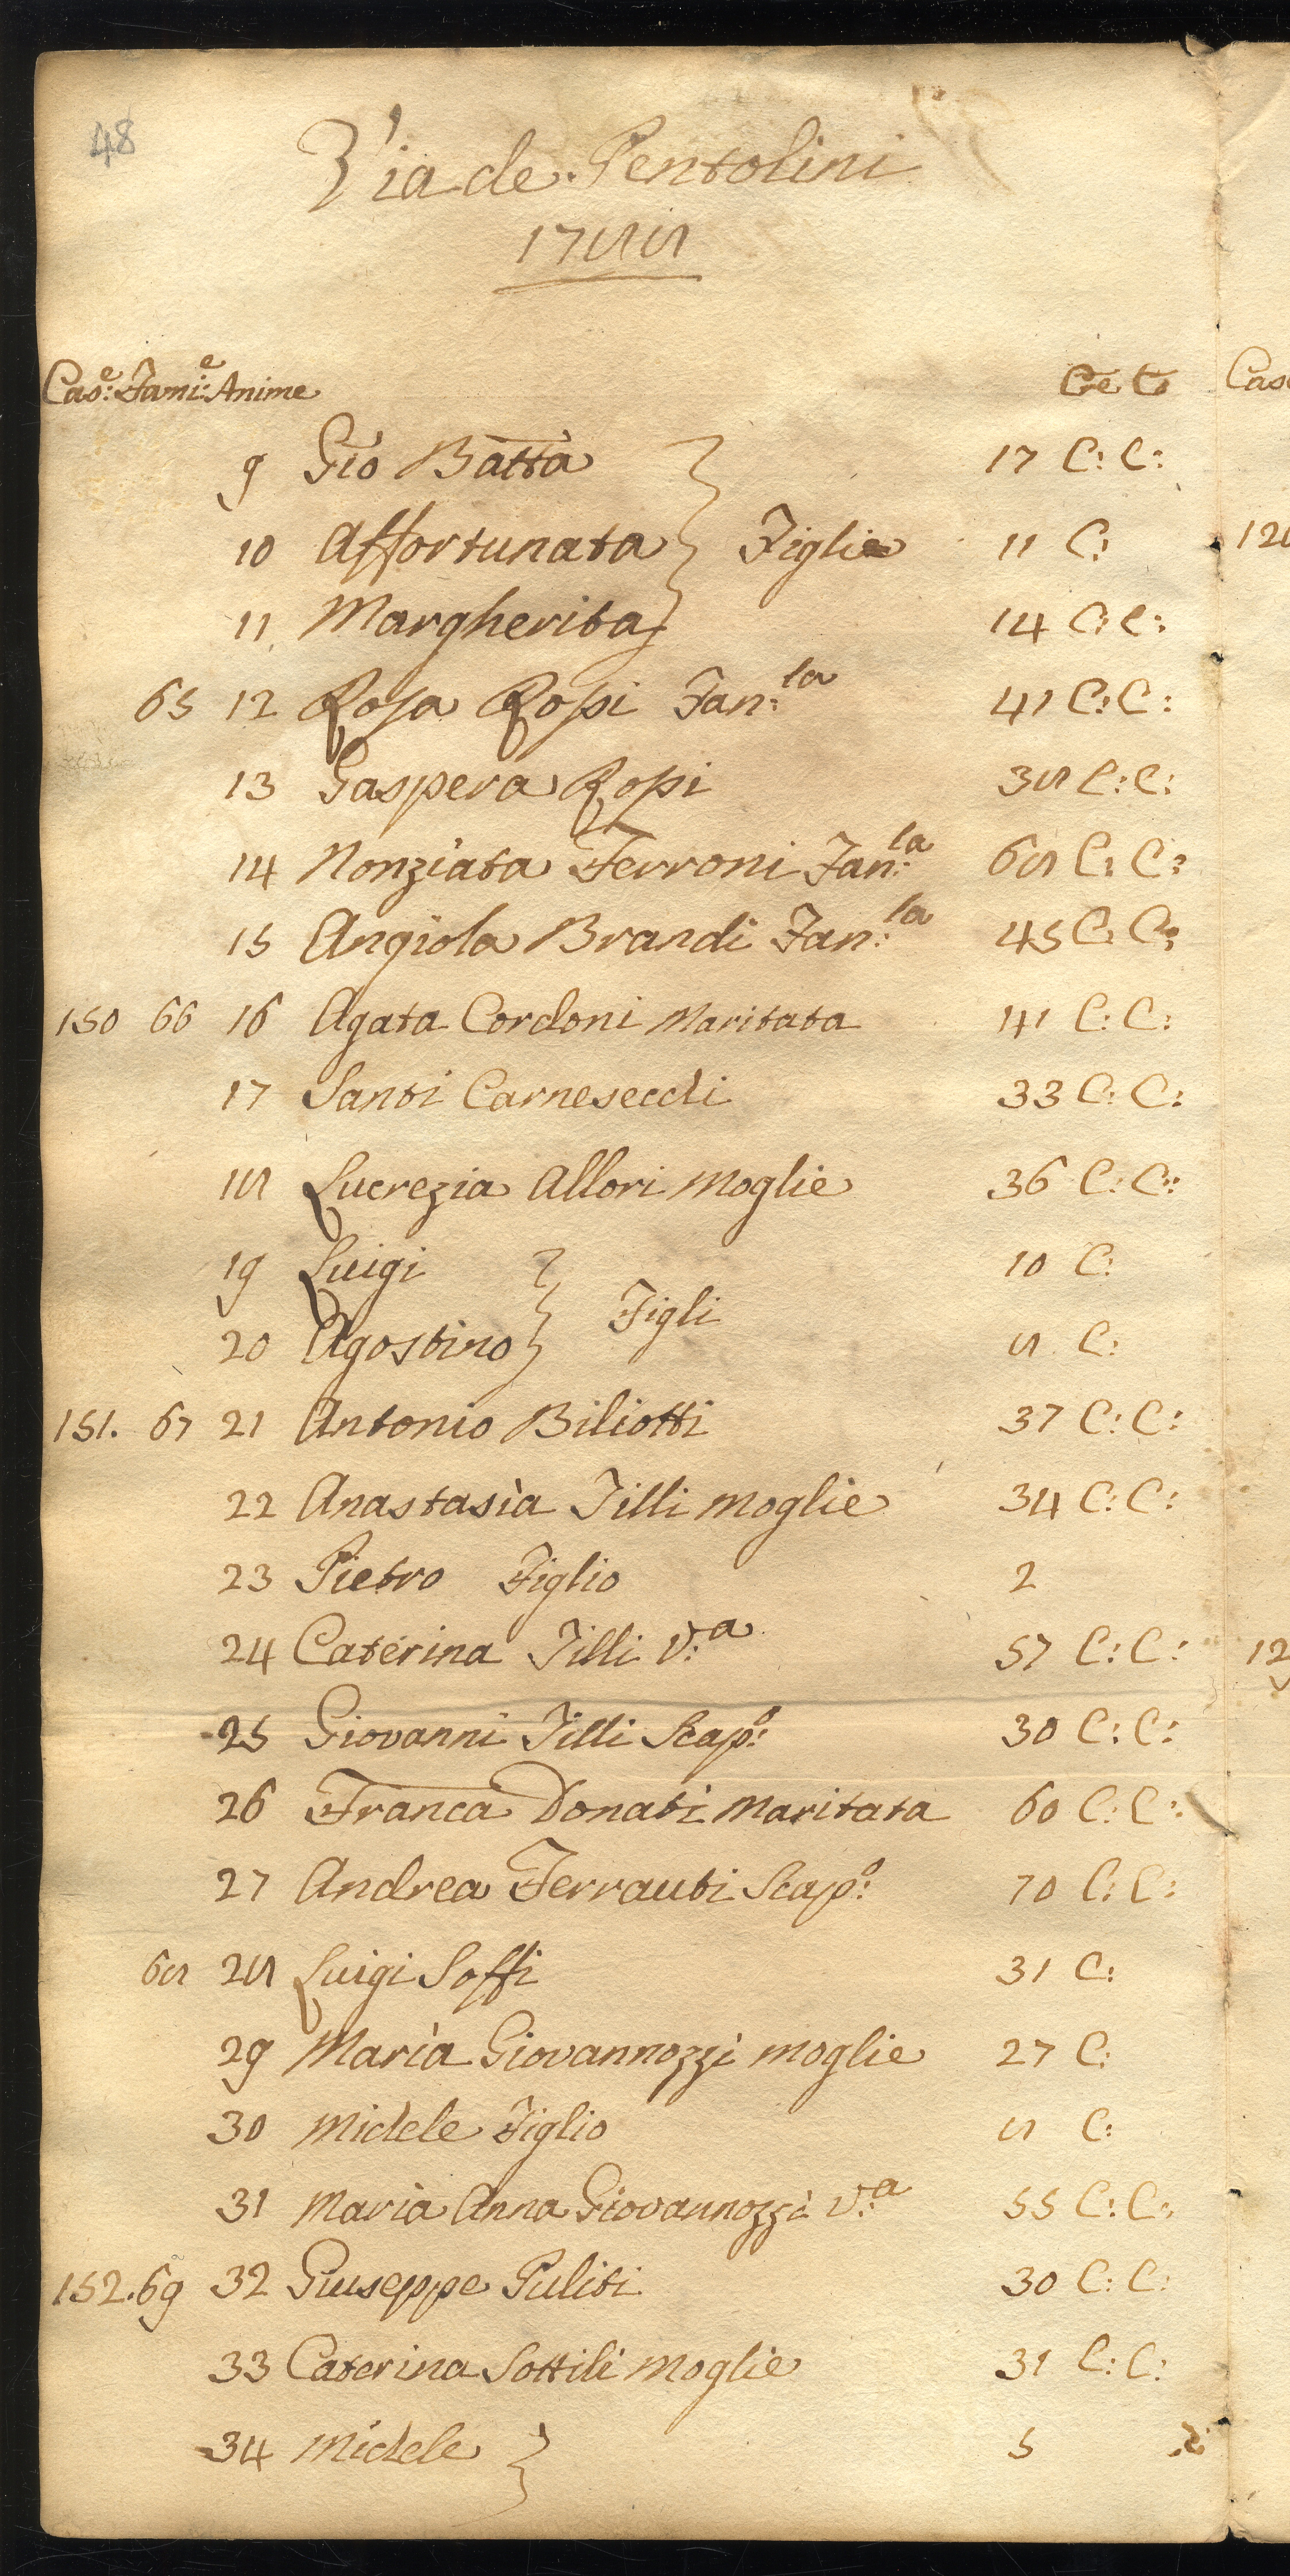 48
Via de Pentolini
1788
Cas:e Fami:e Anime C e C
9 Gio Batta 17 C: C:
10 Affortunata } Figlie 11 C:
11 Margherita 14 C: C:
65 12 Rosa Rossi Fan:la 41 C: C:
13 Gaspera Rossi 38 C: C:
14 Nonziata Ferroni Fan:la 68 C: C:
15 Angiola Brandi Fan:la 45 C: C:
150 66 16 Agata Cordoni Maritata 41 C: C:
17 Santi Carnesecchi 33 C: C:
18 Lucrezia Allori Moglie 36 C: C:
19 Luigi 10 C:
} Figli
20 Agostino 8 C:
151. 67 21 Antonio Biliotti 37 C: C:
22 Anastasia Tilli Moglie 34 C: C:
23 Pietro Figlio 2
24 Caterina Tilli V:a 57 C: C:
25 Giovanni Tilli Scap:o 30 C: C:
26 Franca Donati Maritata 60 C: C:
27 Andrea Ferrauti Scap:o 70 C: C:
68 28 Luigi Soffi 31 C:
29 Maria Giovannozzi moglie 27 C:
30 Michele Figlio 8 C:
31 Maria Anna Giovannozzi V:a 55 C: C:
152. 69 32 Giuseppe Puliti 30 C: C:
33 Caterina Sottili Moglie 31 C: C:
34 Michele } 5